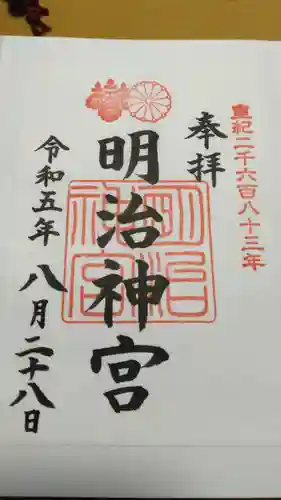 皇紀二千六百八十三年
奉拝
明治神宮
明治神宮
令和五年
八月二十八日